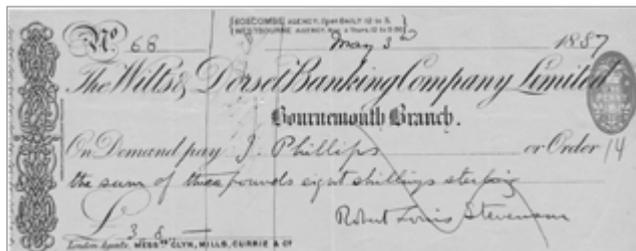 BOSCOMBE AGENCY, Open DAILY 12 to 3.
WESTBOURNE AGENCY,
No. 68 May 3d 1887
The Wilts & Dorset Banking Company Limited
Bournemouth Branch.
On Demand pay J. Phillips or Order 14
the sum of three pounds eight shillings sterling
£ 3. 8. —
Robert Louis Stevenson
London Agents, MESSRS GLYN, MILLS, CURRIE & Co